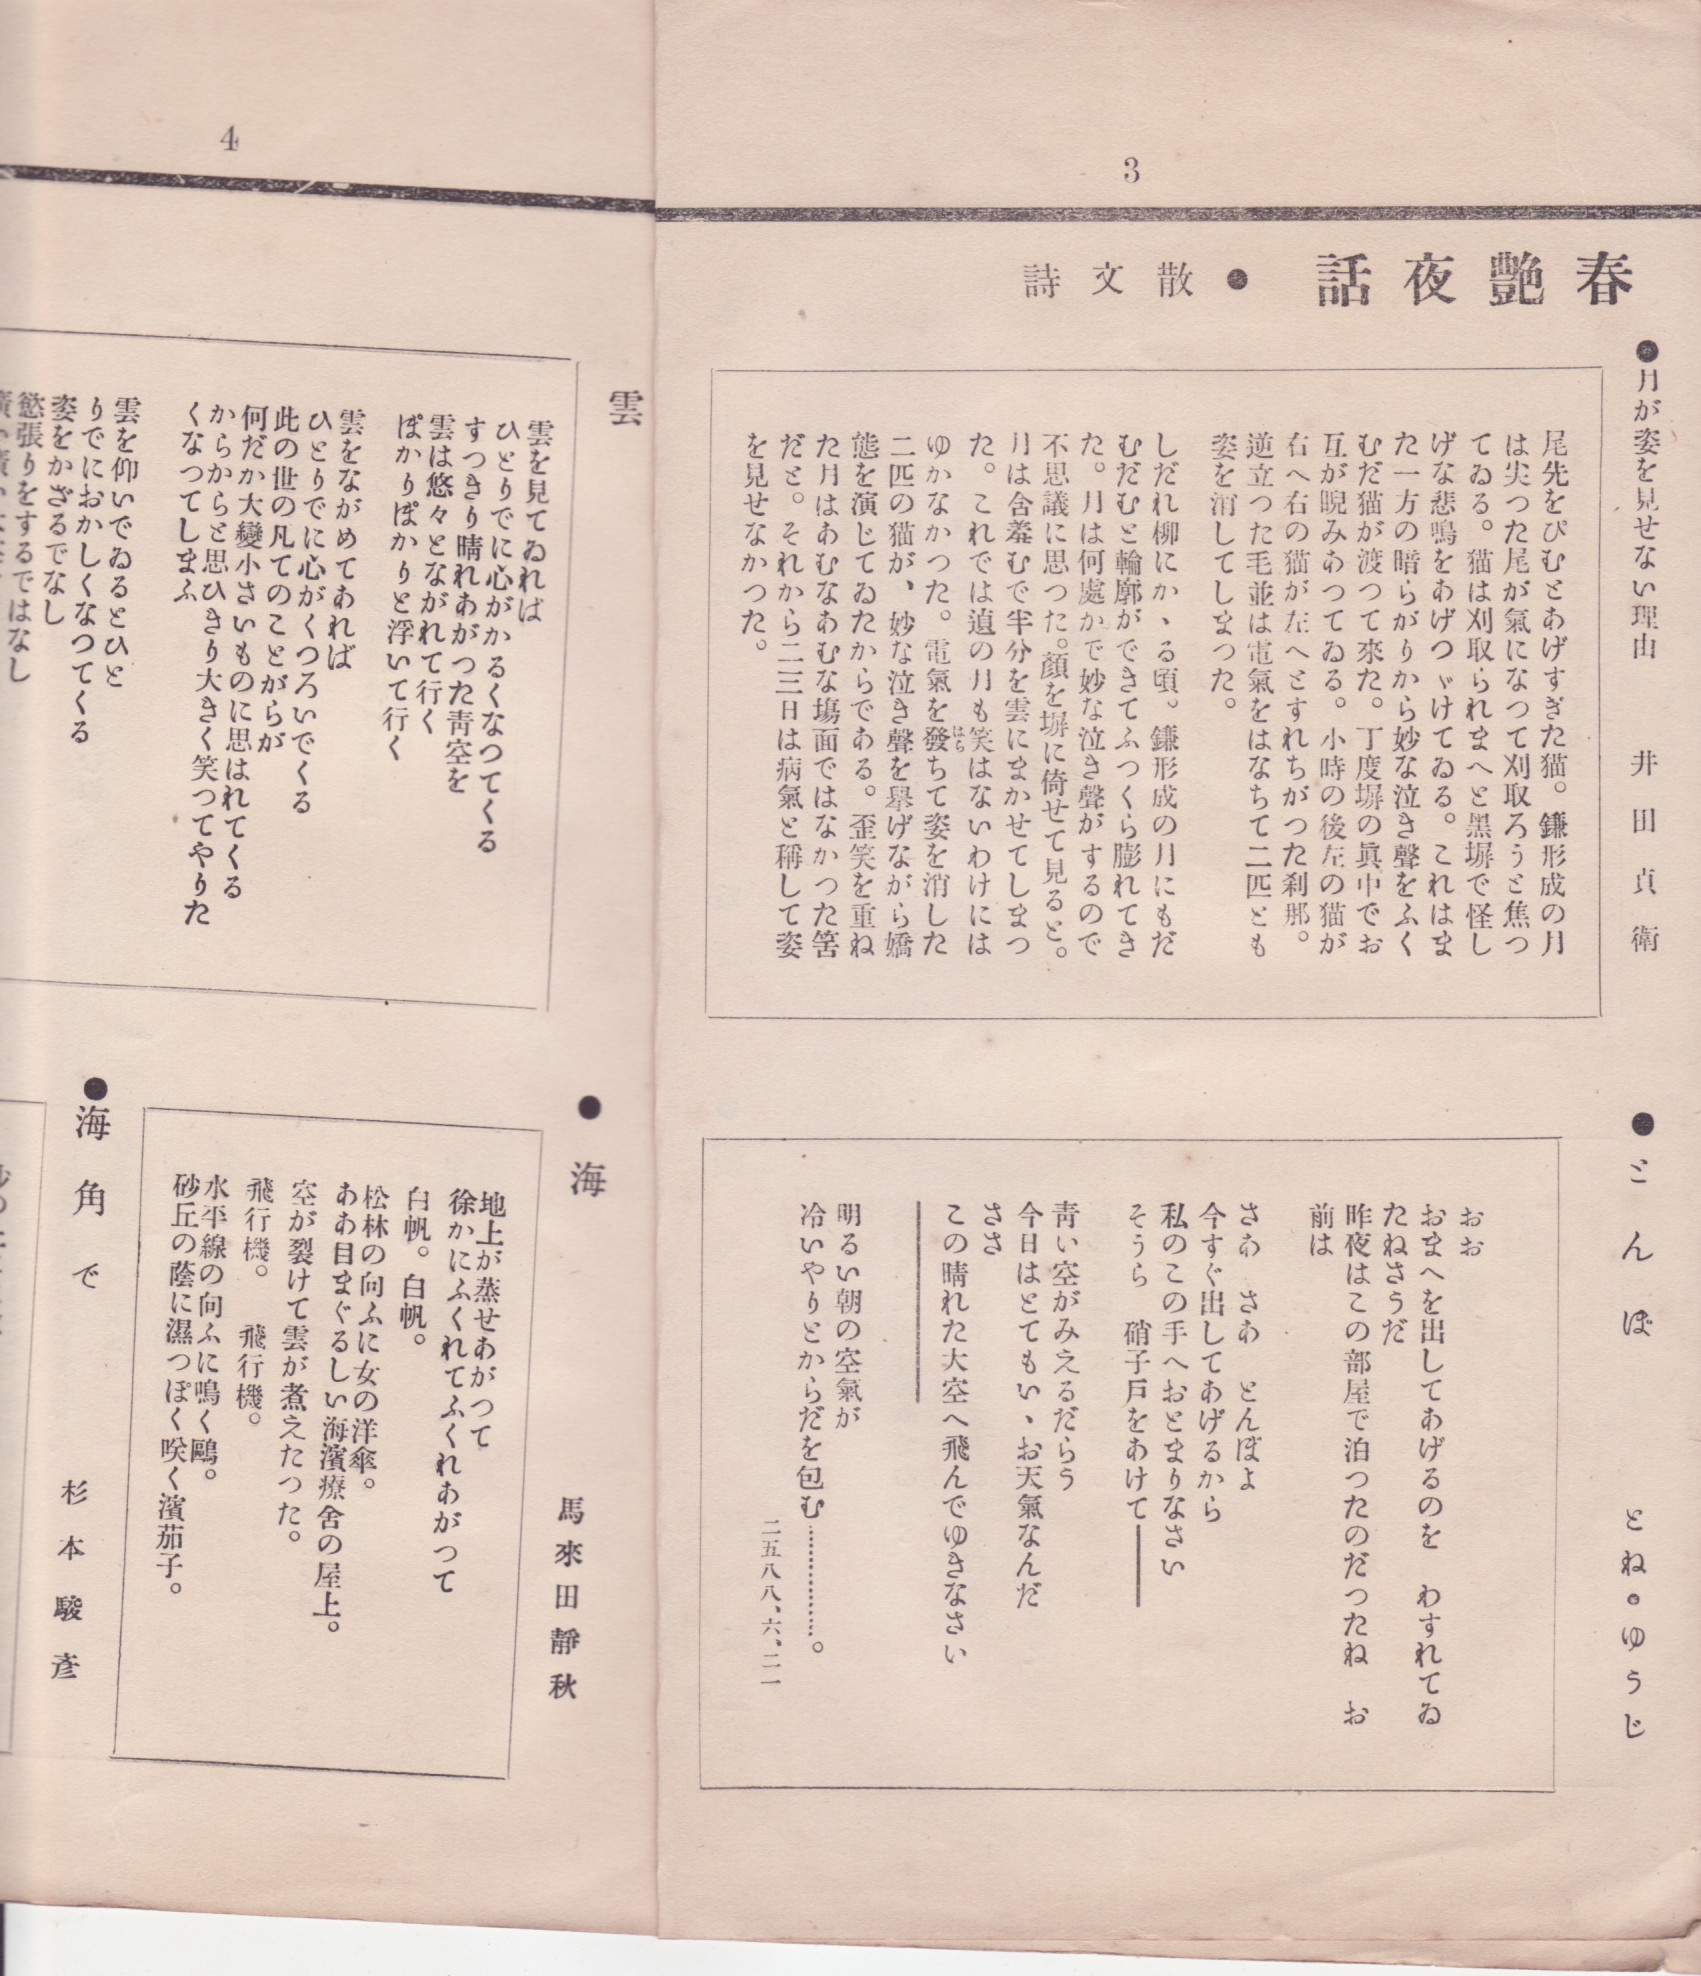 3
春艶夜話 ● 散文詩
●月が姿を見せない理由 井田貞衛
尾先をぴむとあげすぎた猫。鎌形成の月
は尖つた尾が氣になつて刈取ろうと焦つ
てゐる。猫は刈取られまへと黑塀で怪し
げな悲鳴をあげつゞけてゐる。これはま
た一方の暗らがりから妙な泣き聲をふく
むだ猫が渡つて來た。丁度塀の眞中でお
互が睨みあつてゐる。小時の後左の猫が
右へ右の猫が左へとすれちがつた刹那。
逆立つた毛並は電氣をはなちて二匹とも
姿を消してしまつた。
しだれ柳にかゝる頃。鎌形成の月にもだ
むだむと輪廓ができてふつくら膨れてき
た。月は何處かで妙な泣き聲がするので
不思議に思つた。顏を塀に倚せて見ると。
月は含羞むで半分を雲にまかせてしまつ
た。これでは遉の月も笑はないわけには
ゆかなかつた。電氣を發ちて姿を消した
はら
二匹の猫が、妙な泣き聲を擧げながら嬌
態を演じてゐたからである。歪笑を重ね
た月はあむなあむな塲面ではなかつた筈
だと。それから二三日は病氣と稱して姿
を見せなかつた。
●とんぼ とね。ゆうじ
おお
おまへを出してあげるのを わすれてゐ
たねさうだ
昨夜はこの部屋で泊つたのだつたね お
前は
さあ さあ とんぼよ
今すぐ出してあげるから
私のこの手へおとまりなさい
そうら 硝子戸をあけて――
靑い空がみえるだらう
今日はとてもいゝお天氣なんだ
ささ
この晴れた大空へ飛んでゆきなさい
――――
明るい朝の空氣が
冷いやりとからだを包む…………。
二五八八、六、二一
4
雲
雲を見てゐれば
ひとりでに心がかるくなつてくる
すつきり晴れあがつた靑空を
雲は悠々とながれて行く
ぽかりぽかりと浮いて行く
雲をながめてあれば
ひとりでに心がくつろいでくる
此の世の凡てのことがらが
何だか大變小さいものに思はれてくる
からからと思ひきり大きく笑つてやりた
くなつてしまふ
雲を仰いでゐるとひと
りでにおかしくなつてくる
姿をかざるでなし
慾張りをするではなし
●海 馬來田靜秋
地上が蒸せあがつて
徐かにふくれてふくれあがつて
白帆。白帆。
松林の向ふに女の洋傘。
ああ目まぐるしい海濱療舍の屋上。
空が裂けて雲が煮えたつた。
飛行機。 飛行機。
水平線の向ふに鳴く鷗。
砂丘の蔭に濕つぽく咲く濱茄子。
●海角で 杉本駿彥